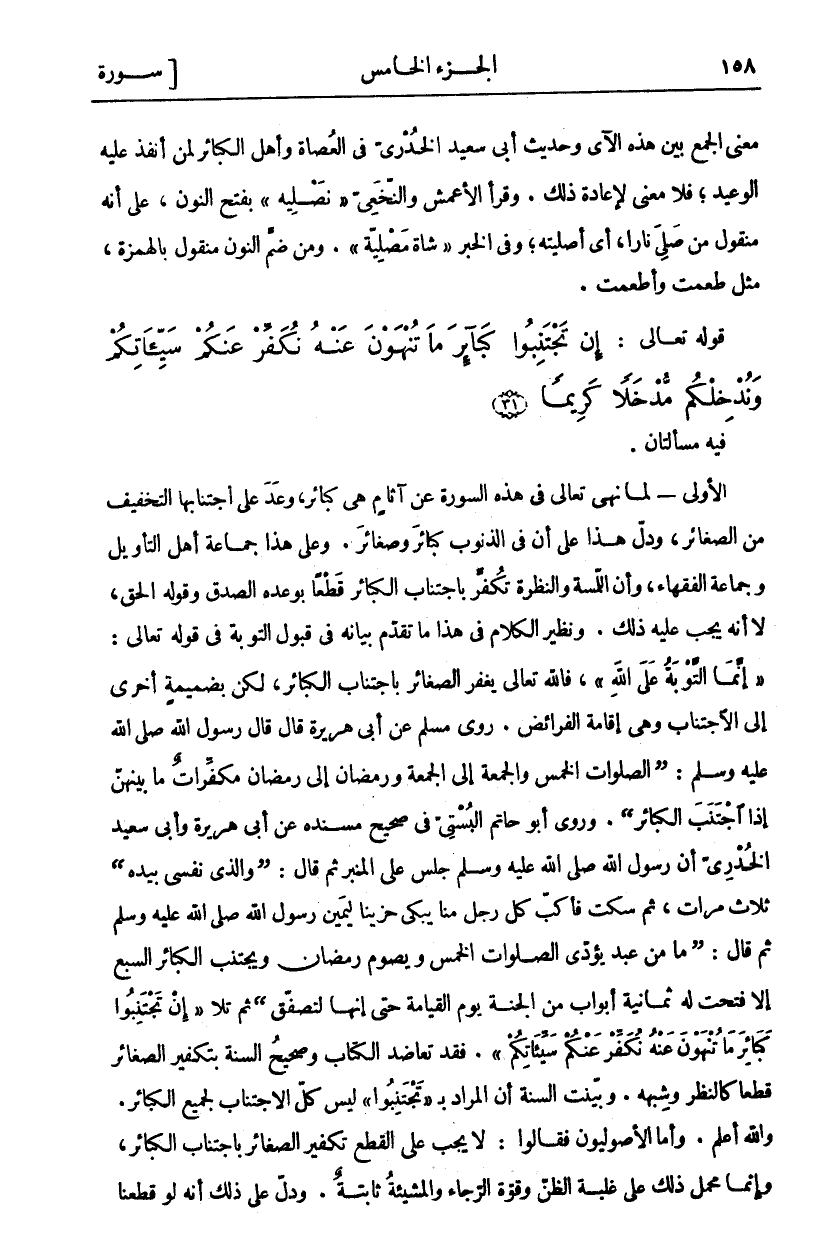 ١٥٨ الجـــزء الخـامس [ ســـورة
معنى الجمع بين هذه الآى وحديث أبى سعيد الخُدْرىّ فى العُصاة وأهل الكبائر لمن أنفذ عليه
الوعيد؛ فلا معنى لإعادة ذلك . وقرأ الأعمش والنَّخَعِىّ « نَصْـلِيه » بفتح النون ، على أنه
منقول من صَلِىَ نارا، أى أصليته؛ وفى الخبر « شاة مَصْلِيّة » . ومن ضمَّ النون منقول بالهمزة ،
مثل طعمت وأطعمت .
قوله تعـالى : إِن تَجْتَنِبُوا كَبَآئِرَ مَا تُنْهَوْنَ عَنْـهُ نُكَفِّرْ عَنكُمْ سَيِّئَاتِكُمْ
وَنُدْخِلْكُم مُّدْخَلًا كَرِيمًـا ﴿٣١﴾
فيه مسألتان .
الأولى — لمـا نهـى تعالى فى هذه السورة عن آثامٍ هى كبائر، وعَدَ على اجتنابها التخفيف
من الصغائر ، ودلّ هـذا على أن فى الذنوب كبائرَ وصغائرَ . وعلى هذا جمـاعة أهل التأويل
وجماعة الفقهاء، وأن اللّمسة والنظرة تكفَّر باجتناب الكبائر قَطْعًا بوعده الصدق وقوله الحق،
لا أنه يجب عليه ذلك . ونظير الكلام فى هذا ما تقدّم بيانه فى قبول التوبة فى قوله تعالى :
« إِنَّمَـا التَّوْبَةُ عَلَى اللهِ » ، فالله تعالى يغفر الصغائر باجتناب الكبائر، لكن بضميمةٍ أخرى
إلى الاجتناب وهى إقامة الفرائض . روى مسلم عن أبى هريرة قال قال رسول الله صلى الله
عليه وسـلم : ”الصلوات الخمس والجمعة إلى الجمعة ورمضان إلى رمضان مكفِّراتٌ ما بينهنّ
إذا اجْتَنَبَ الكبائر“ . وروى أبو حاتم البُسْتِىّ فى صحيح مسـنده عن أبى هريرة وأبى سعيد
الخُدْرِىّ أن رسول الله صلى الله عليه وسـلم جلس على المنبر ثم قال : ”والذى نفسى بيده“
ثلاث مرات ، ثم سكت فأكبّ كل رجل منا يبكى حزينا ليَمين رسول الله صلى الله عليه وسلم
ثم قال : ”ما من عبد يؤدّى الصـلوات الخمس ويصوم رمضان ويجتنب الكبائر السبع
إلا فتحت له ثمـانية أبواب من الجنـة يوم القيامة حتى إنهـا لتصفّق “ ثم تلا « إِنْ تَجْتَنِبُوا
كَبَائِرَ مَا تُنْهَوْنَ عَنْهُ نُكَفِّرْ عَنْكُمْ سَيِّئَاتِكُمْ » . فقد تعاضد الكتاب وصحيحُ السنة بتكفير الصغائر
قطعا كالنظر وشِبهه . وبيّنت السنة أن المراد بـ «تَجْتَنِبُوا» ليس كلّ الاجتناب لجميع الكبائر.
والله أعلم . وأما الأصوليون فقـالوا : لا يجب على القطع تكفير الصغائر باجتناب الكبائر ،
وإنمـا محمل ذلك على غلبـة الظنّ وقوّة الرّجاء والمشيئةُ ثابتـةٌ . ودلّ على ذلك أنه لو قطعنا